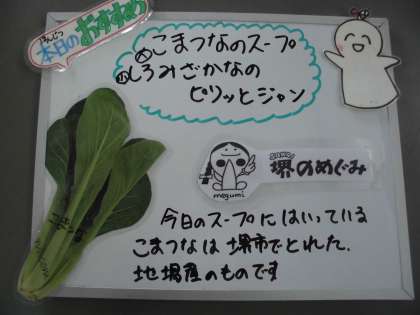 ほんじつ
本日のおすすめ
こまつなのスープ
しろみざかなの
ピリッとジャン
堺のめぐみ
megumi
今日のスープにはいっている
こまつなは堺市でとれた、
地場産のものです